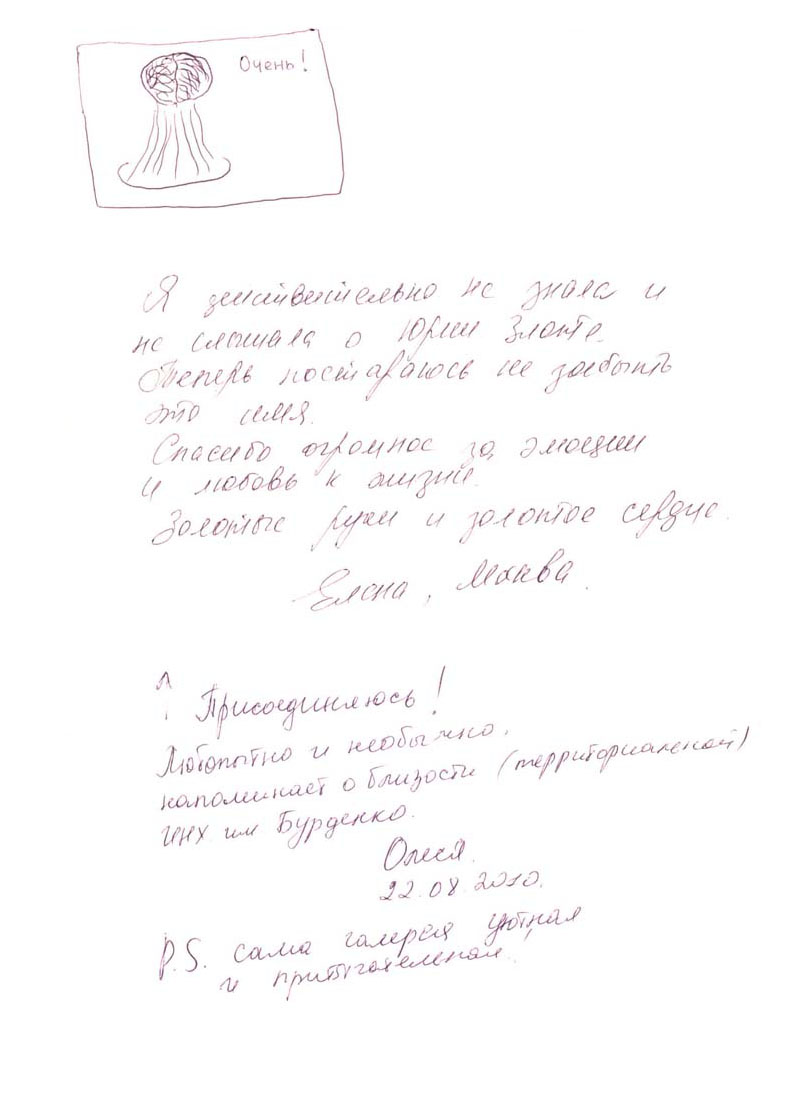 Очень!
Я действительно не знала и
не слышала о Юрии Злоте.
Теперь постараюсь не забыть
это имя.
Спасибо огромное за эмоции
и любовь к жизни.
Золотые руки и золотое сердце.
Елена, Москва.
↑ Присоединяюсь!
Любопытно и необычно,
напоминает о близости (территориальной)
ИНХ им Бурденко.
Олеся.
22.08.2010.
P.S. сама галерея уютная
и притягательная.